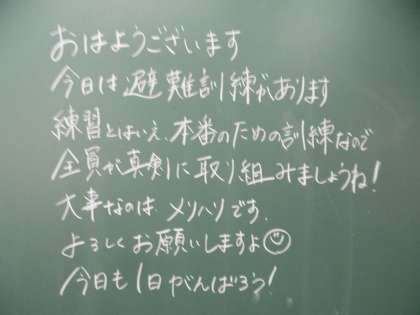 おはようございます
今日は避難訓練があります
練習とはいえ、本番のための訓練なので
全員が真剣に取り組みましょうね！
大事なのは、メリハリです。
よろしくお願いしますよ☺
今日も1日がんばろう！